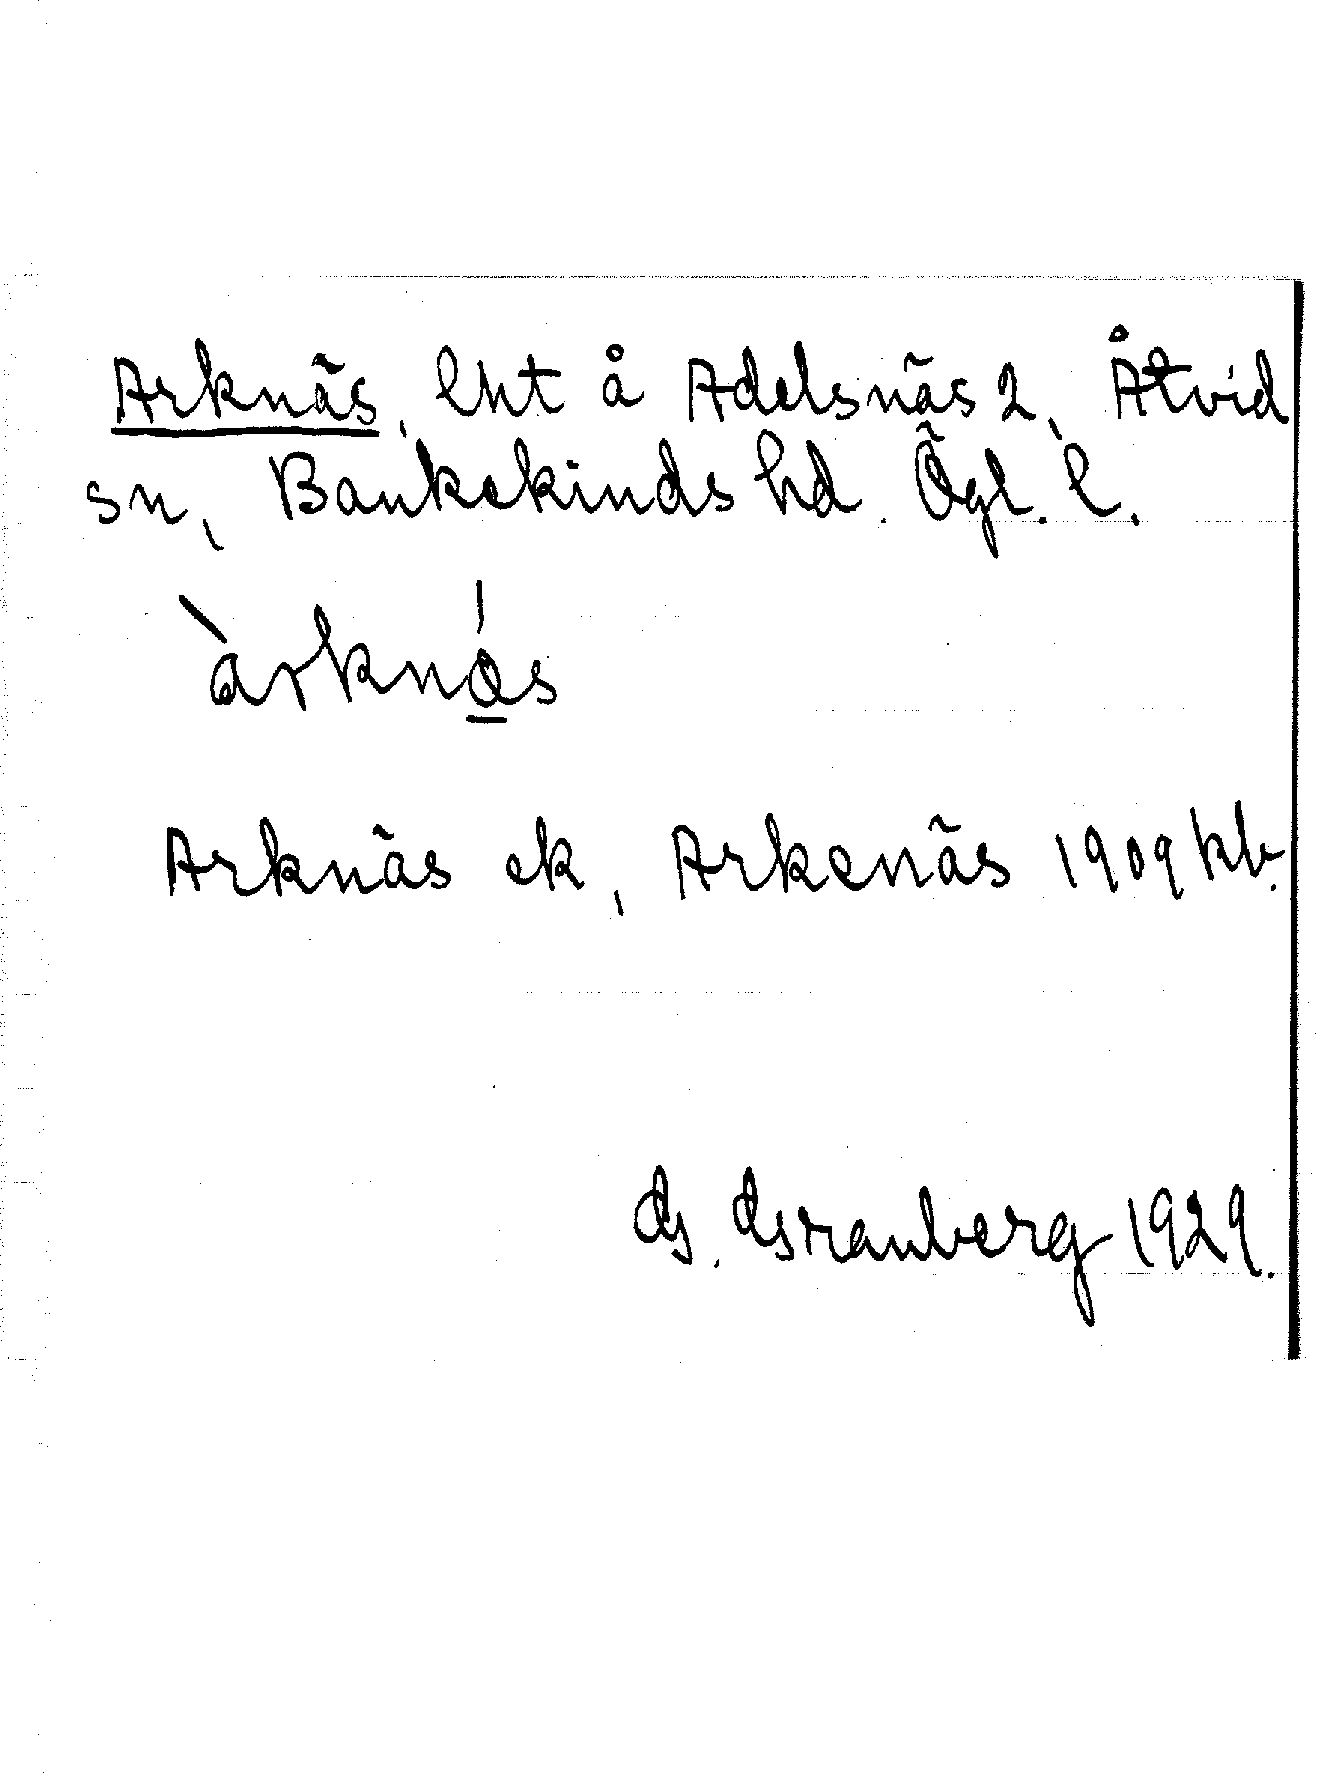 Arknäs, lht å Adelsnäs 2, Åtvid
sn, Bankekinds hd. Ögl. l.
àrknás
Arknäs ek, Arkenäs 1909 kb.
G. Granberg 1929.